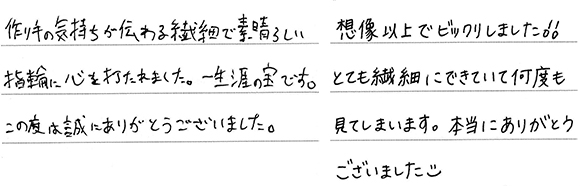 作り手の気持ちが伝わる繊細で素晴らしい
指輪に心を打たれました。一生涯の宝です。
この度は誠にありがとうございました。
想像以上でビックリしました!!
とても繊細にできていて何度も
見てしまいます。本当にありがとう
ございました